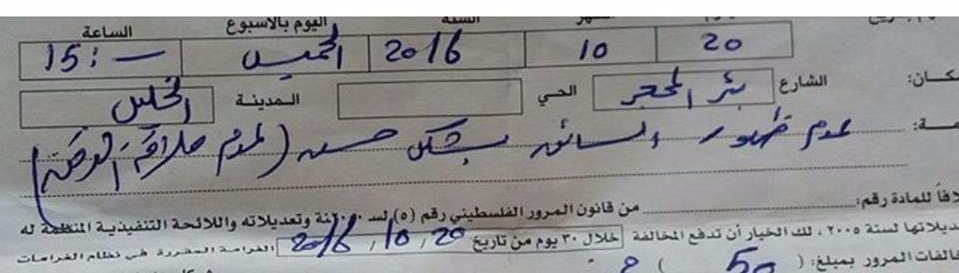 السنة اليوم بالاسبوع الساعة
20 10 2016 الخميس 15:—
الشارع بئر المحجر الحي المدينة الخليل
عدم ظهور السائق بشكل حسن (لعدم حلاقة الذقن)
من قانون المرور الفلسطيني رقم (٥) لسنة ٢٠٠٠ وتعديلاته واللائحة التنفيذية المنظمة له
لسنة ٢٠٠٥ ، لك الخيار أن تدفع المخالفة خلال ٣٠ يوم من تاريخ 20/10/2016 الغرامة المقررة في نظام الغرامات
المرور بمبلغ: ( 50 )